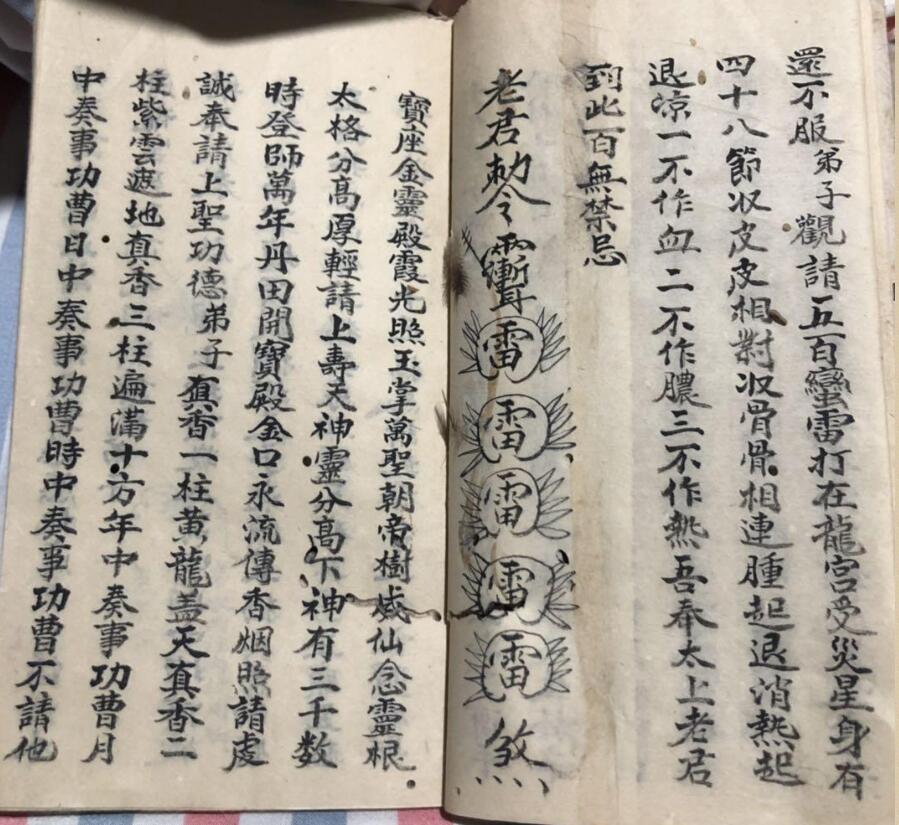 還不服弟子觀請五百蠻雷打在龍宮受災星身有
四十八節㳄皮皮相對㳄骨骨相連腫起退消熱起
退凉一不作血二不作膿三不作熱吾奉太上老君
到此百無禁忌
老君勅令雷雷雷雷雷煞
寶座金靈殿霞光照玉掌萬聖朝帝樹威仙念靈根
太格分高厚輕請上壽天神靈分高下神有三千数
時登師萬年丹田開寶殿金口永流傳香烟照請虔
誠奉請上聖功德弟子真香一柱黄龍盖天真香二
柱紫雲遮地真香三柱遍滿十方年中奏事功曹月
中奏事功曹日中奏事功曹時中奏事功曹不請他